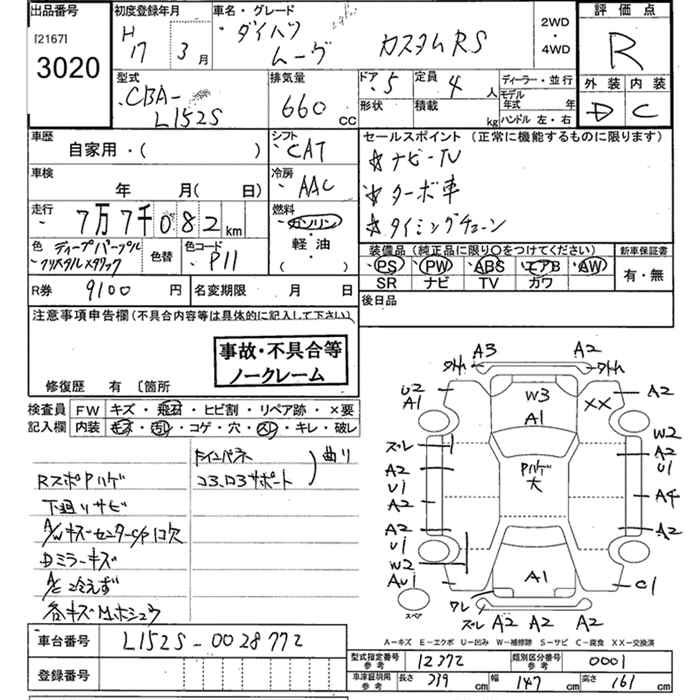 出品番号 初度登録年月 車名・グレード 2WD ・ 4WD 評価点
[2167] H 17年 3月 ダイハツ ムーヴ カスタムRS R
3020
型式 排気量 ドア 5 定員 4人 ディーラー・並行 外装 内装
CBA-L152S 660cc 形状 積載 kg モデル年式 年 D C
ハンドル 左・右
車歴 シフト セールスポイント (正常に機能するものに限ります)
自家用・( ) CAT ☆ナビ-TV
車検 冷房 ☆ターボ車
年 月( 日) AAC ☆タイミングチェーン
走行 7万7千082km 燃料
ガソリン・軽油・( )
色 ディープパープルクリスタルメタリック 色替 色コード P11
装備品 (純正品に限り〇をつけてください) 新車保証書
PS PW ABS エアB AW 有・無
SR ナビ TV カワ
R券 9100円 名変期限 月 日 後日品
注意事項申告欄 (不具合内容等は具体的に記入して下さい)
事故・不具合等
ノークレーム
修復歴 有 〔箇所
検査員 FW キズ・飛石・ヒビ割・リペア跡・×要
記入欄 内装 モズ・汚れ・コゲ・穴・スレ・キレ・破レ
RスポPハゲ
下廻りサビ
A/WキズーセンターC/P1コ欠
Dミラーキズ
A/C冷えず
各キズM.ホシュウ
インパネ
コア.ロアサポート
曲り
A3 A2
外れ 外れ
U2 A1 W3 XX A2
A1
W2
ズレ A2 U1
A2 Pハゲ大
U1 A4
A2
A2 A2
U1
W2
AU1 A1 C1
スペア ワレ
ズレ A2 A2 A2
A-キズ E-エクボ U-凹み W-補修跡 S-サビ C-腐食 XX-交換済
車台番号 L152S-0028772
登録番号
型式指定番号 参考 12372 類別区分番号 参考 0001
車庫証明用 参考 長さ 339cm 幅 147cm 高さ 161cm